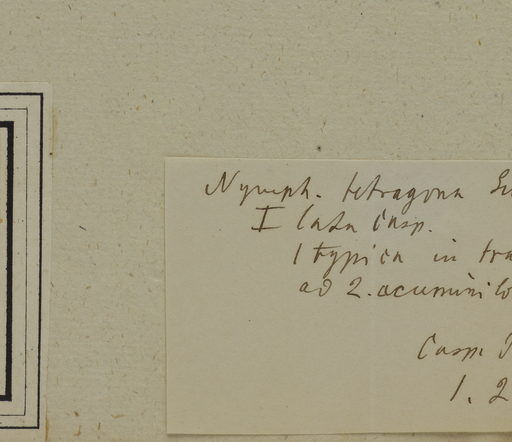 Nymph. tetragona
I lata Casp.
1 typica in tra
ad 2. acumini
Casp.
1. 2